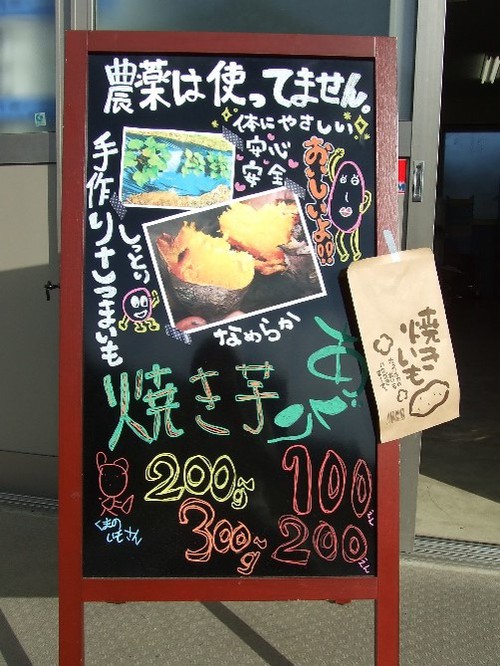 農薬は使ってません。
体にやさしい
安心
安全
おいしいよ!!
手作りさつまいも
しっとり
なめらか
焼き芋
200g〜
100えん
300g〜
200えん
くまの
いもさん
焼き
いも